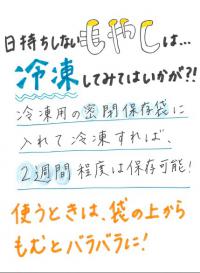 日持ちしないもやしは…
冷凍してみてはいかが?!
冷凍用の密閉保存袋に
入れて冷凍すれば、
2週間程度は保存可能!
使うときは、袋の上から
もむとバラバラに!